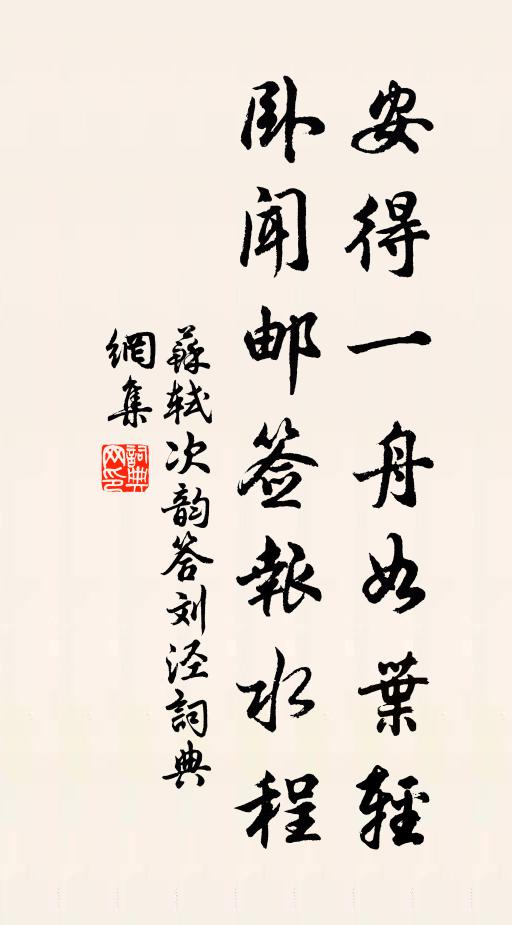 安得一舟如葉輕
卧闻邮签報水程
蘇軾次韵答刘泾詞典
網集
詞典
网印